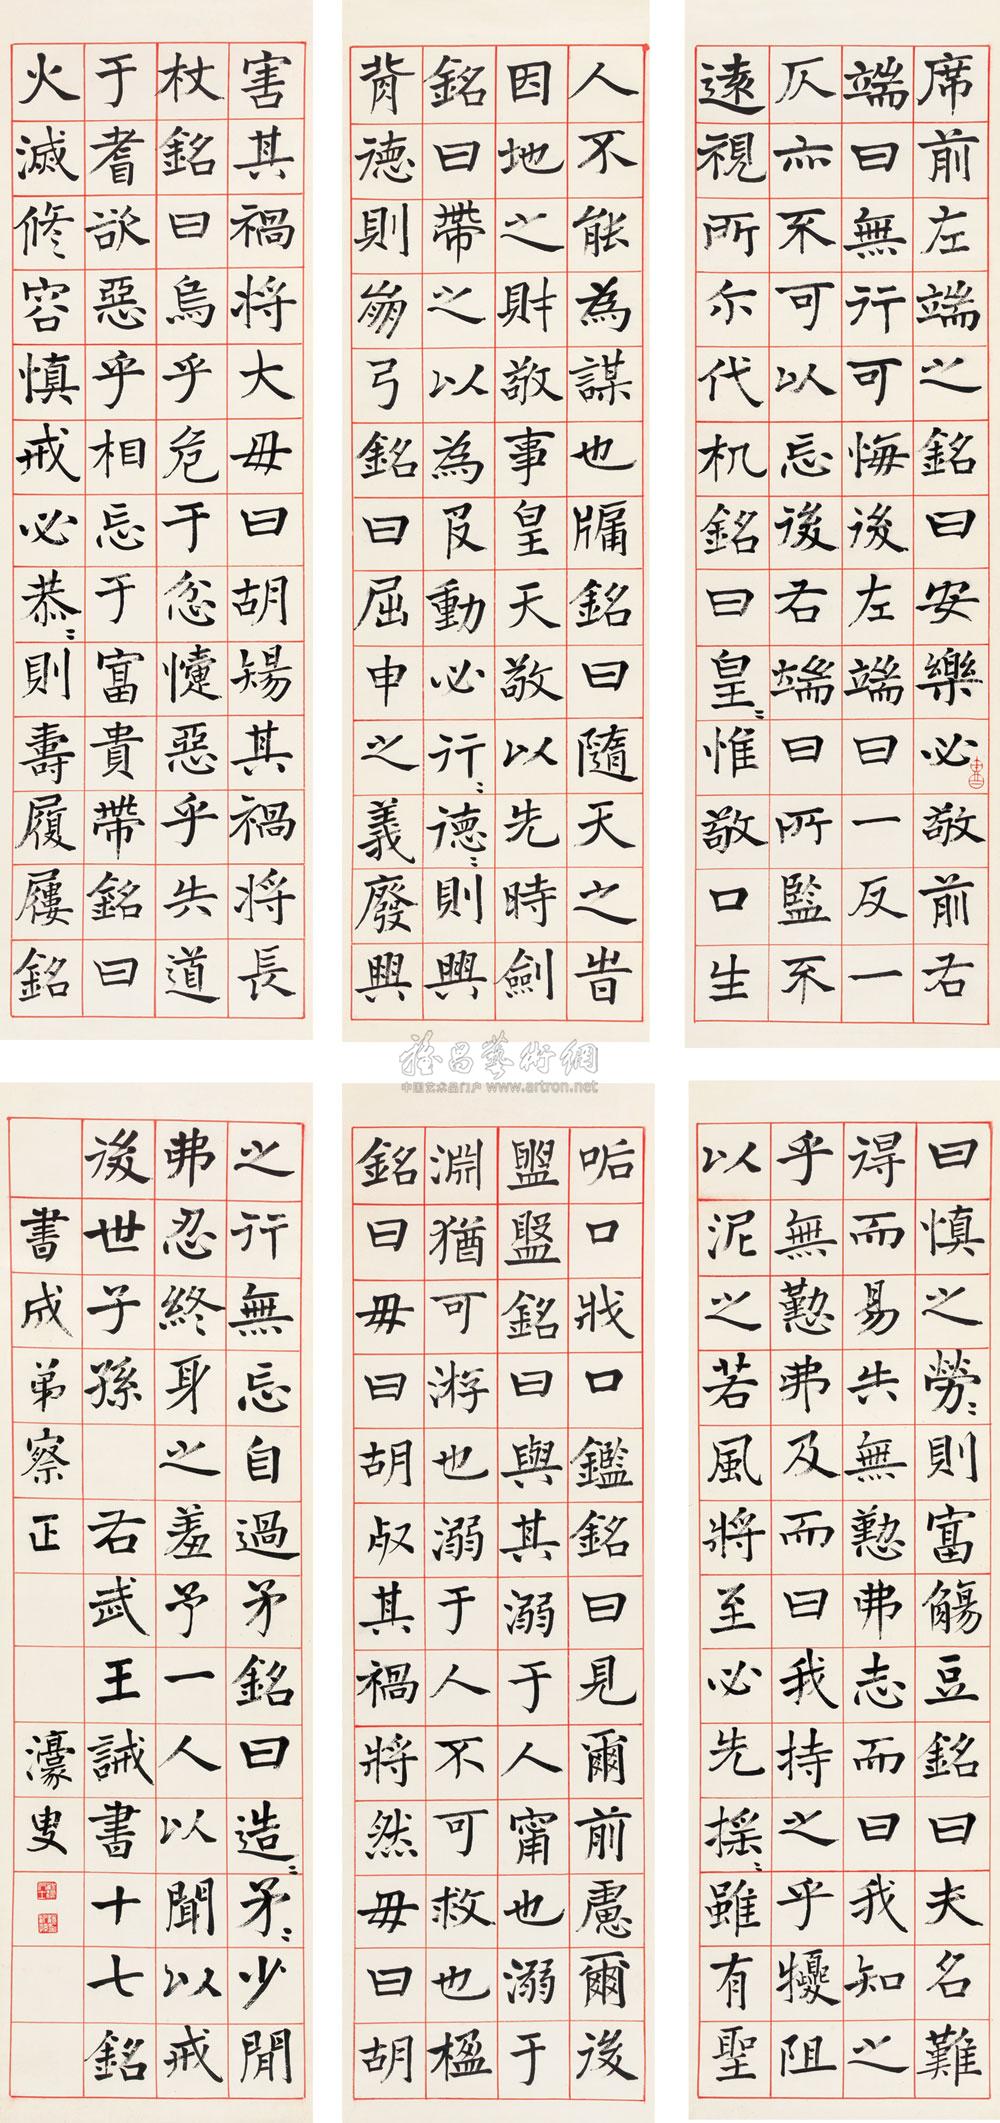 席前左端之銘曰安樂必敬前右
端曰無行可悔後左端曰一反一
仄亦不可以忘後右端曰所監不
遠視所尒代机銘曰皇〻惟敬口生
垢口戕口鑑銘曰見爾前慮爾後
盥盤銘曰與其溺于人甯也溺于
淵猶可游也溺于人不可救也楹
銘曰毋曰胡歺其禍將然毋曰胡
害其禍將大毋曰胡傷其禍將長
杖銘曰烏乎危于忿懥惡乎失道
于耆欲惡乎相忘于富貴帶銘曰
火滅修容慎戒必恭〻則壽履屨銘
曰慎之勞〻則富觴豆銘曰夫名難
得而易失無懃弗志而曰我知之
乎無懃弗及而曰我持之乎擾阻
以泥之若風將至必先搖〻雖有聖
人不能為謀也牖銘曰隨天之旹
因地之財敬事皇天敬以先時劍
銘曰帶之以為𠬝動必行〻德〻則興
背德則崩弓銘曰屈申之義廢興
之行無忘自過矛銘曰造〻矛〻少閒
弗忍終身之羞予一人以聞以戒
後世子孫 右武王誡書十七銘
書成弟察正 濠叟
雅昌藝術網
中国艺术品门户 www.artron.net